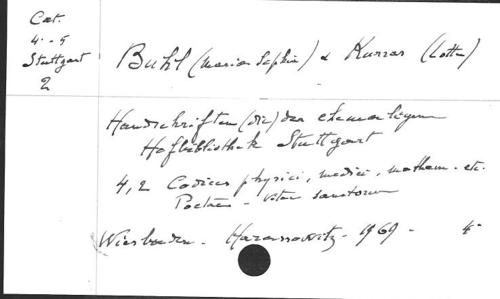 Cat.
4° - 5
Stuttgart
2
Buhl (Maria Sophia) & Kurras (Lotte)
Handschriften (die) der ehemaligen
Hofbibliothek Stuttgart
4,2 Codices physici, medici, mathem. etc.
Poetae - Vitae sanctorum
Wiesbaden - Harrassowitz - 1969 - 4°